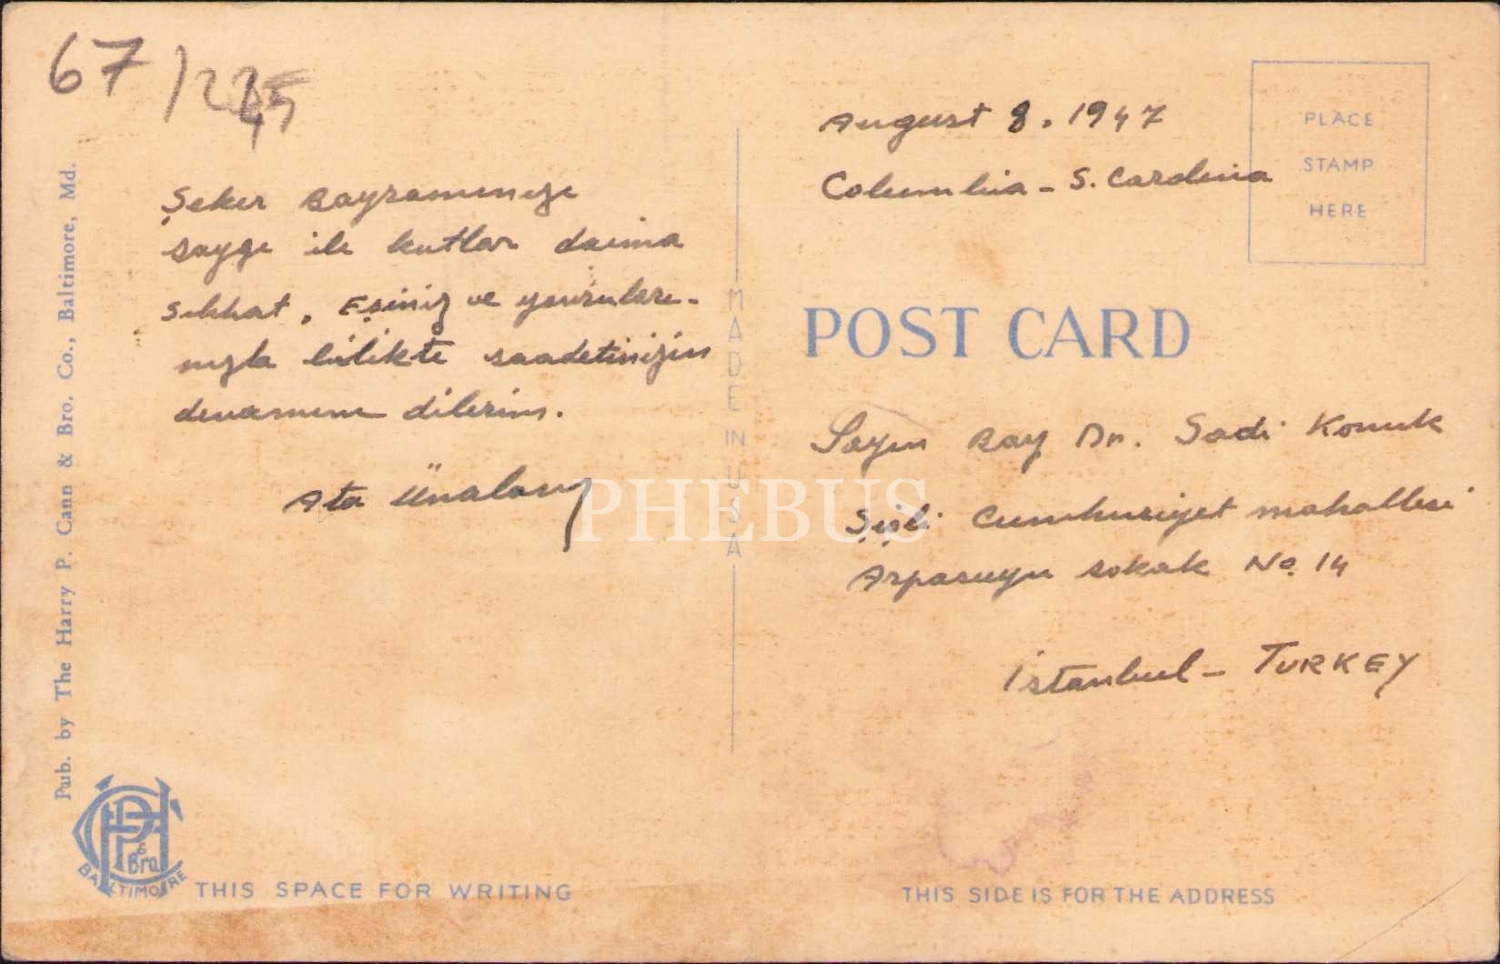 67/225
August 8. 1947
Columbia - S. Carolina
PLACE
STAMP
HERE
Şeker Bayramınızı
saygı ile kutlar daima
sıhhat, Eşiniz ve yavruları-
nızla birlikte saadetinizin
devamını dilerim.
Ata Ünalan
MADE IN USA
POST CARD
Sayın Bay Dr. Sadi Konuk
Şişli Cumhuriyet mahallesi
Arpasuyu sokak No. 14
İstanbul - TURKEY
PHEBUS
Pub. by The Harry P. Cann & Bro. Co., Baltimore, Md.
HPC & Bro
BALTIMORE
THIS SPACE FOR WRITING
THIS SIDE IS FOR THE ADDRESS